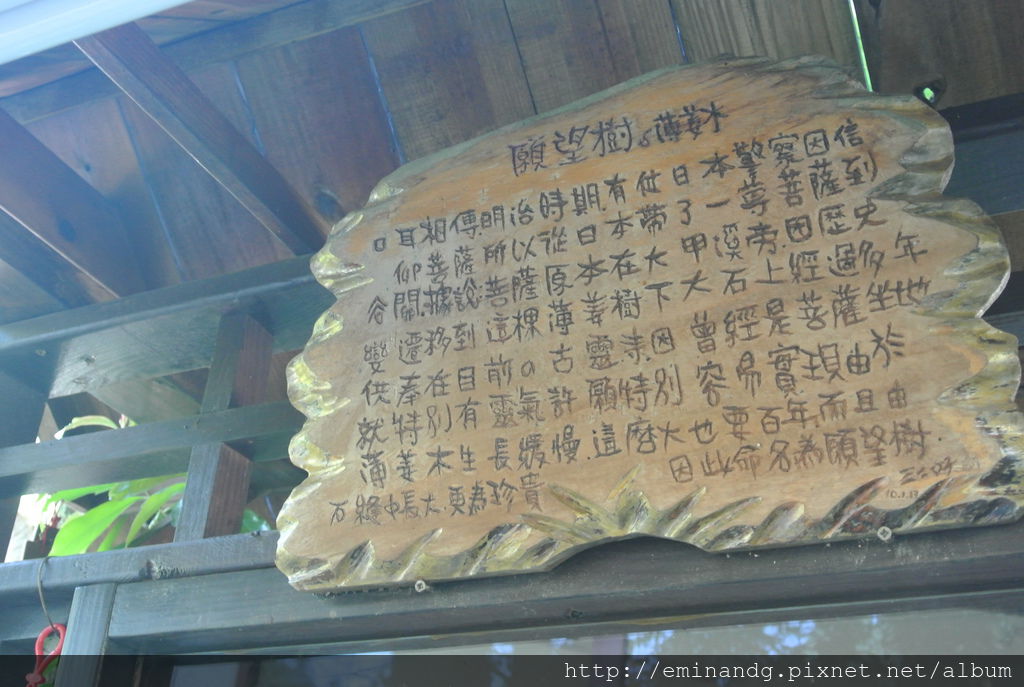 願望樹。薄姜木
口耳相傳明治時期有位日本警察因信
仰菩薩所以從日本帶了一尊菩薩到
谷關.據說菩薩原本在大甲溪旁因歷史
變遷移到這棵薄姜樹下大石上經過多年
供奉在目前の古靈寺因曾經是菩薩坐地
就特別有靈氣許願特別容易實現由於
薄姜木生長緩慢這麼大也要百年而且由
石縫中長大.更為珍貴因此命名為願望樹.
10.1.13
http://eminandg.pixnet.net/album